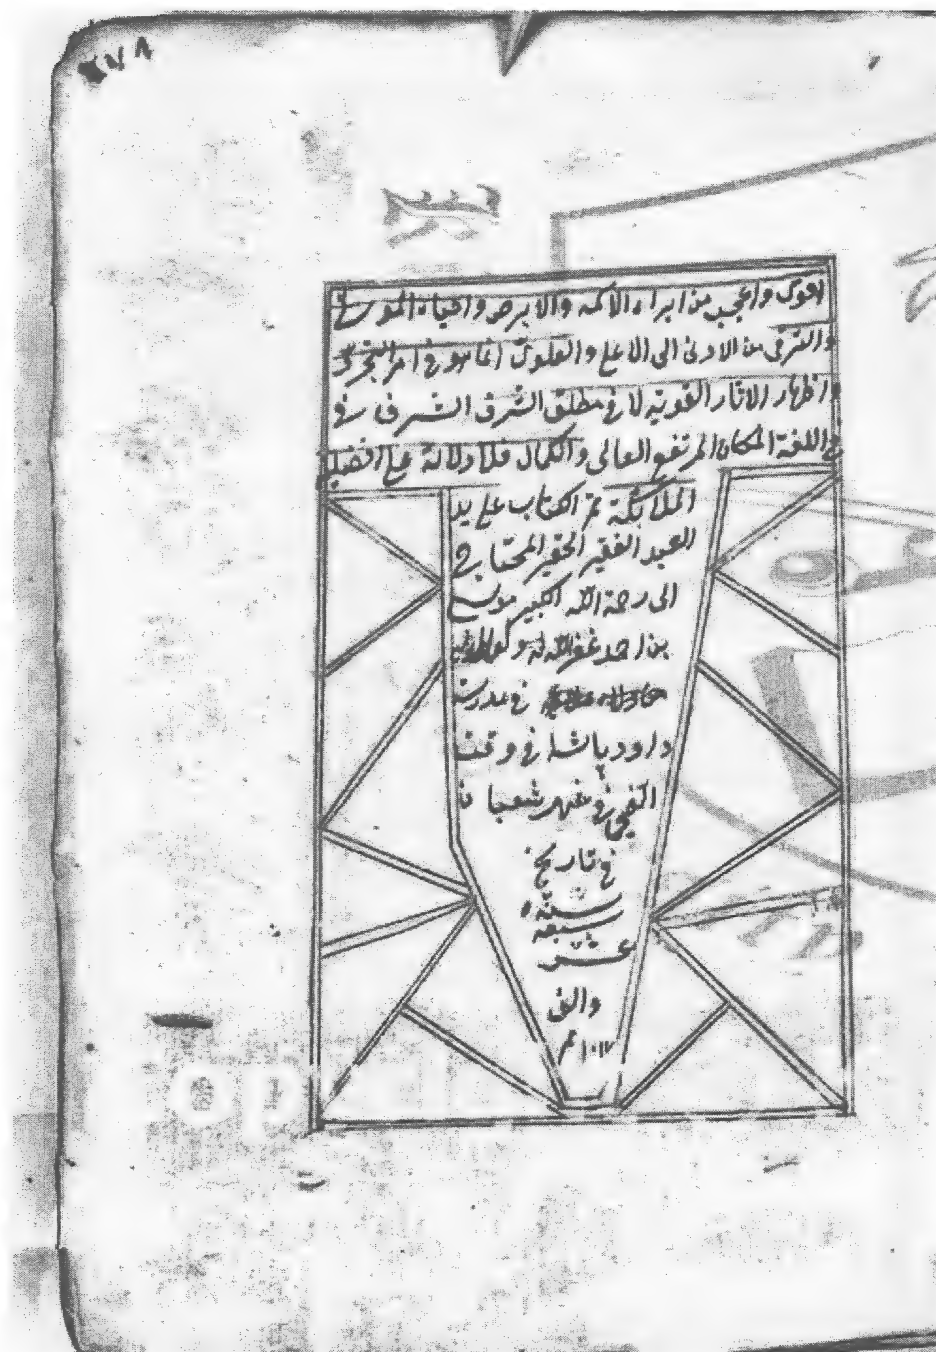 ٢٧٨
اقوى واعجب من ابراء الاكمه والابرص واحياء الموتى
والترقى من الادنى الى الاعلى والعلوى انما هو فى امر التجرد
واظهار الاثار القويه لا فى مطلق الشرف الشرف فى
فى اللغة المكان المرتفع العالى والكمال فلا دلالة على افضلية
الملائكة تم الكتاب على يد
العبد الفقير الحقير المحتاج
الى رحمة الله الكبير
بن احمد غفر الله له و
فى مدرسة
داود پاشا فى وقت
شهر شعبان
فى تاريخ
سنة
سبعة
عشر
والف
١٠١٧